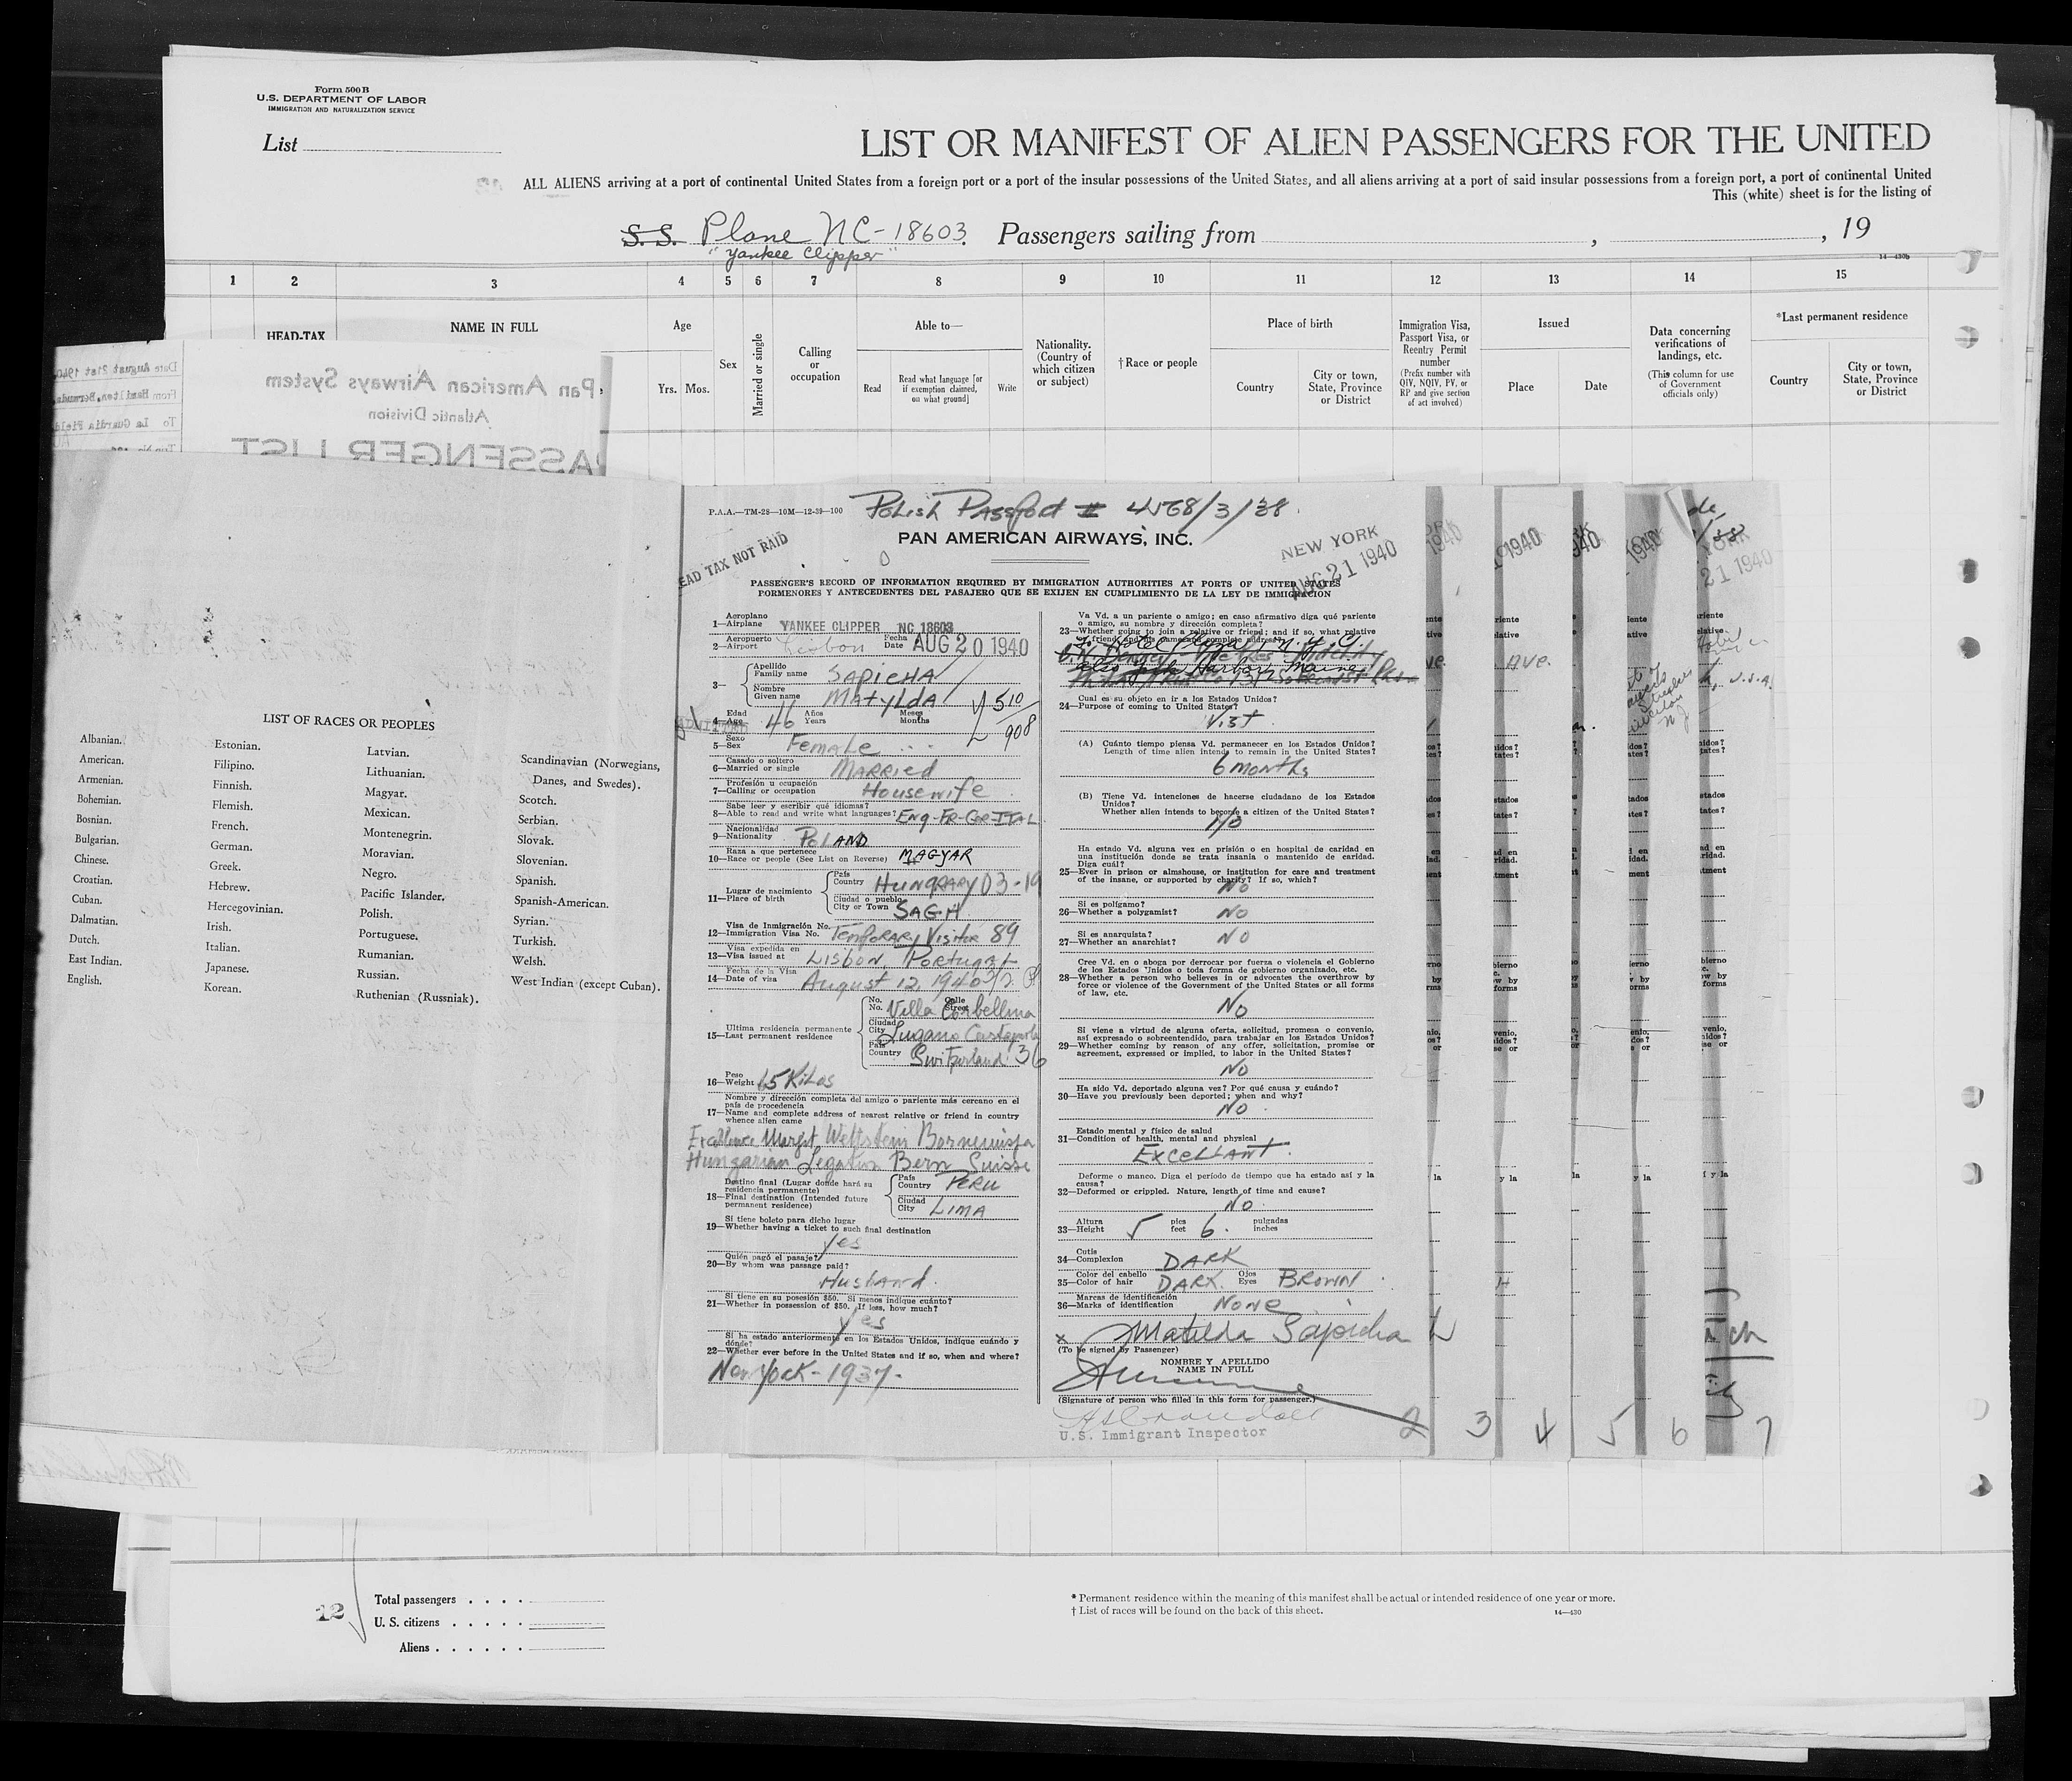 Form 500 B
U.S. DEPARTMENT OF LABOR
IMMIGRATION AND NATURALIZATION SERVICE
List
LIST OR MANIFEST OF ALIEN PASSENGERS FOR THE UNITED
ALL ALIENS arriving at a port of continental United States from a foreign port or a port of the insular possessions of the United States, and all aliens arriving at a port of said insular possessions from a foreign port, a port of continental United
This (white) sheet is for the listing of
S.S. Plane NC-18603. Passengers sailing from , , 19
"Yankee Clipper"
14-430b
1 2 3 4 5 6 7 8 9 10 11 12 13 14 15
HEAD-TAX
NAME IN FULL
Age
Yrs. Mos.
Sex
Married or single
Calling
or
occupation
Able to—
Read
Read what language [or
if exemption claimed,
on what ground]
Write
Nationality.
(Country of
which citizen
or subject)
† Race or people
Place of birth
Country
City or town,
State, Province
or District
Immigration Visa,
Passport Visa, or
Reentry Permit
number
(Prefix number with
QIV, NQIV, PV, or
RP and give section
of act involved)
Issued
Place
Date
Data concerning
verifications of
landings, etc.
(This column for use
of Government
officials only)
*Last permanent residence
Country
City or town,
State, Province
or District
Pan American Airways System
Atlantic Division
PASSENGER LIST
Date August 21st 1940
From Hamilton, Bermuda
To La Guardia Field
LIST OF RACES OR PEOPLES
Albanian.
American.
Armenian.
Bohemian.
Bosnian.
Bulgarian.
Chinese.
Croatian.
Cuban.
Dalmatian.
Dutch.
East Indian.
English.
Estonian.
Filipino.
Finnish.
Flemish.
French.
German.
Greek.
Hebrew.
Hercegovinian.
Irish.
Italian.
Japanese.
Korean.
Latvian.
Lithuanian.
Magyar.
Mexican.
Montenegrin.
Moravian.
Negro.
Pacific Islander.
Polish.
Portuguese.
Rumanian.
Russian.
Ruthenian (Russniak).
Scandinavian (Norwegians,
Danes, and Swedes).
Scotch.
Serbian.
Slovak.
Slovenian.
Spanish.
Spanish-American.
Syrian.
Turkish.
Welsh.
West Indian (except Cuban).
P.A.A.—TM-28—10M—12-39—100
Polish Passport # 4568/3/38
PAN AMERICAN AIRWAYS, INC.
EAD TAX NOT PAID
NEW YORK
AUG 21 1940
PASSENGER'S RECORD OF INFORMATION REQUIRED BY IMMIGRATION AUTHORITIES AT PORTS OF UNITED STATES
PORMENORES Y ANTECEDENTES DEL PASAJERO QUE SE EXIJEN EN CUMPLIMIENTO DE LA LEY DE IMMIGRACION
Aeroplano
1—Airplane YANKEE CLIPPER NC 18603
Aeropuerto Fecha
2—Airport Lisbon Date AUG 20 1940
3—
Apellido
Family name SAPIEHA
Nombre
Given name MATYLDA
510/908
ADMITTED
Edad Años Meses
4—Age 46 Years Months
Sexo
5—Sex Female
Casado o soltero
6—Married or single MARRIED
Profesión u ocupación
7—Calling or occupation Housewife
Sabe leer y escribir qué idiomas?
8—Able to read and write what languages? ENG-FR-GER-ITAL
Nacionalidad
9—Nationality POLAND
Raza a que pertenece
10—Race or people (See List on Reverse) MAGYAR
Lugar de nacimiento
11—Place of birth
País
Country HUNGRARY 03-19
Ciudad o pueblo
City or Town SAGH
Visa de Inmigración No.
12—Immigration Visa No. TEMPORARY VISITOR 89
Visa expedida en
13—Visa issued at LISBON, PORTUGAL
Fecha de la Visa
14—Date of visa August 12 1940
Ultima residencia permanente
15—Last permanent residence
No. Calle
No. Street Villa Corbellina
Ciudad
City Lugano Castagnola
País
Country Switzerland 36
Peso
16—Weight 65 KILOS
Nombre y dirección completa del amigo o pariente más cercano en el
país de procedencia
17—Name and complete address of nearest relative or friend in country
whence alien came
Excellence Margit Wettstein Bornemisza
Hungarian Legation Bern Suisse
Destino final (Lugar donde hará su
residencia permanente)
18—Final destination (Intended future
permanent residence)
País
Country PERU
Ciudad
City LIMA
Si tiene boleto para dicho lugar
19—Whether having a ticket to such final destination
Yes
Quién pagó el pasaje?
20—By whom was passage paid?
Husband.
Si tiene en su posesión $50. Si menos indique cuánto?
21—Whether in possession of $50. If less, how much?
Yes
Si ha estado anteriormente en los Estados Unidos, indique cuándo y
dónde?
22—Whether ever before in the United States and if so, when and where?
New York - 1937-
Va Vd. a un pariente o amigo; en caso afirmativo diga qué pariente
o amigo, su nombre y dirección completa?
23—Whether going to join a relative or friend; and if so, what relative
or friend, and his name and complete address?
Harbor, Maine
Cual es su objeto en ir a los Estados Unidos?
24—Purpose of coming to United States?
Visit
(A) Cuánto tiempo piensa Vd. permanecer en los Estados Unidos?
Length of time alien intends to remain in the United States?
6 months
(B) Tiene Vd. intenciones de hacerse ciudadano de los Estados
Unidos?
Whether alien intends to become a citizen of the United States?
No
Ha estado Vd. alguna vez en prisión o en hospital de caridad en
una institución donde se trata insania o mantenido de caridad.
Diga cuál?
25—Ever in prison or almshouse, or institution for care and treatment
of the insane, or supported by charity? If so, which?
No
Si es polígamo?
26—Whether a polygamist? NO
Si es anarquista?
27—Whether an anarchist? NO
Cree Vd. en o aboga por derrocar por fuerza o violencia el Gobierno
de los Estados Unidos o toda forma de gobierno organizado, etc.
28—Whether a person who believes in or advocates the overthrow by
force or violence of the Government of the United States or all forms
of law, etc.
NO
Si viene a virtud de alguna oferta, solicitud, promesa o convenio,
así expresado o sobreentendido, para trabajar en los Estados Unidos?
29—Whether coming by reason of any offer, solicitation, promise or
agreement, expressed or implied, to labor in the United States?
NO
Ha sido Vd. deportado alguna vez? Por qué causa y cuándo?
30—Have you previously been deported; when and why?
NO.
Estado mental y físico de salud
31—Condition of health, mental and physical
EXCELLANT.
Deforme o manco. Diga el período de tiempo que ha estado así y la
causa?
32—Deformed or crippled. Nature, length of time and cause?
NO.
Altura pies pulgadas
33—Height 5 feet 6. inches
Cutis
34—Complexion DARK
Color del cabello Ojos
35—Color of hair DARK. Eyes BROWN.
Marcas de identificación
36—Marks of identification NONE
x Matilda Sapieha
(To be signed by Passenger)
NOMBRE Y APELLIDO
NAME IN FULL
(Signature of person who filled in this form for passenger.)
U.S. Immigrant Inspector
2 3 4 5 6 7
12
Total passengers . . . .
U. S. citizens . . . . .
Aliens . . . . . .
* Permanent residence within the meaning of this manifest shall be actual or intended residence of one year or more.
† List of races will be found on the back of this sheet.
14-430